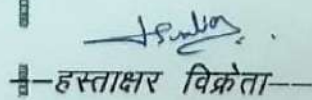 हस्ताक्षर विक्रेता